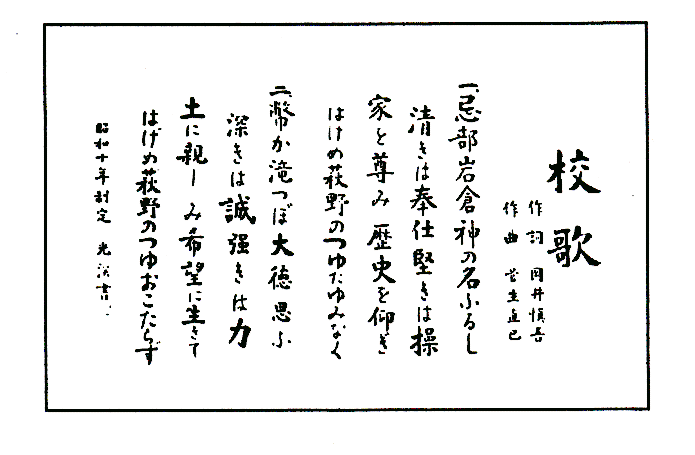 校歌
作詞 岡井慎吾
作曲 菅生直巳
一、忌部岩倉神の名ふるし
清きは奉仕堅きは操
家を尊み歴史を仰ぎ
はげめ萩野のつゆたゆみなく
二、幣が滝つぼ大徳思ふ
深きは誠強きは力
土に親しみ希望に生きて
はげめ萩野のつゆおこたらず
昭和十年制定